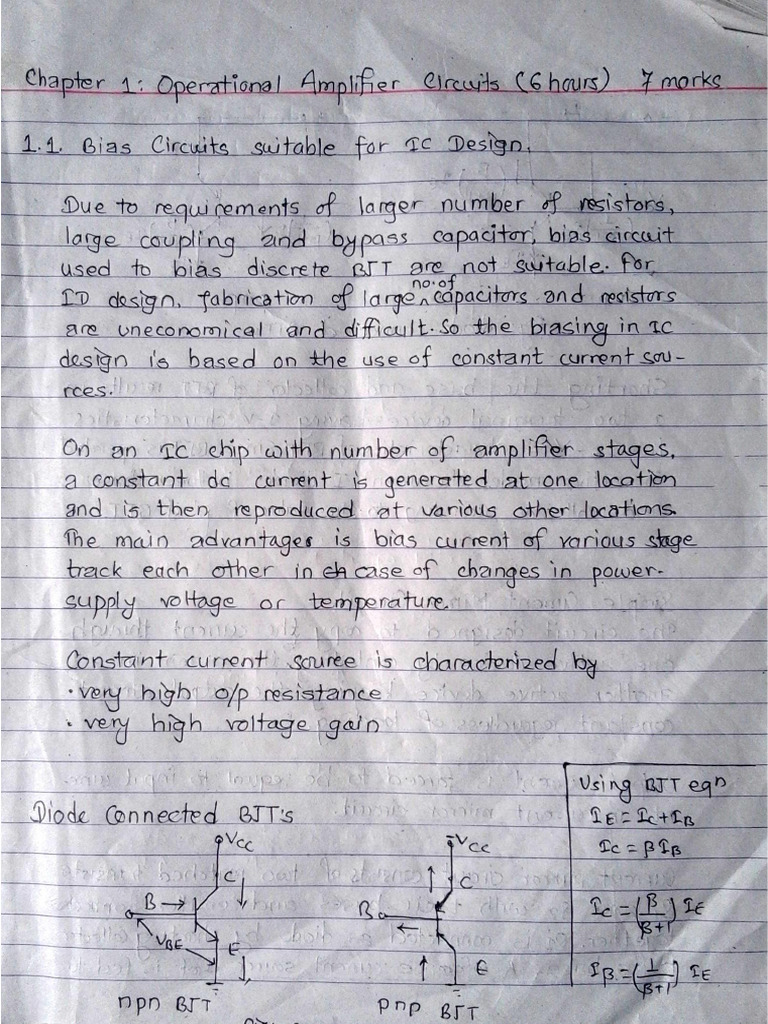 Chapter 1: Operational Amplifier Circuits (6 hours) 7 marks
1.1. Bias Circuits suitable for IC Design.
Due to requirements of larger number of resistors,
large coupling and bypass capacitor, bias circuit
used to bias discrete BJT are not suitable. For
ID design, fabrication of large no. of capacitors and resistors
are uneconomical and difficult. So the biasing in IC
design is based on the use of constant current sou-
rces.
On an IC chip with number of amplifier stages,
a constant dc current is generated at one location
and is then reproduced at various other locations.
The main advantages is bias current of various stage
track each other in case of changes in power-
supply voltage or temperature.
Constant current source is characterized by
• very high o/p resistance
• very high voltage gain
Diode Connected BJT's
VCC
C
B →
VBE
E
npn BJT
-VCC
C
B
E
pnp BJT
Using BJT eqn
IE = IC + IB
IC = βIB
IC = (β/β+1) IE
IB = (1/β+1) IE